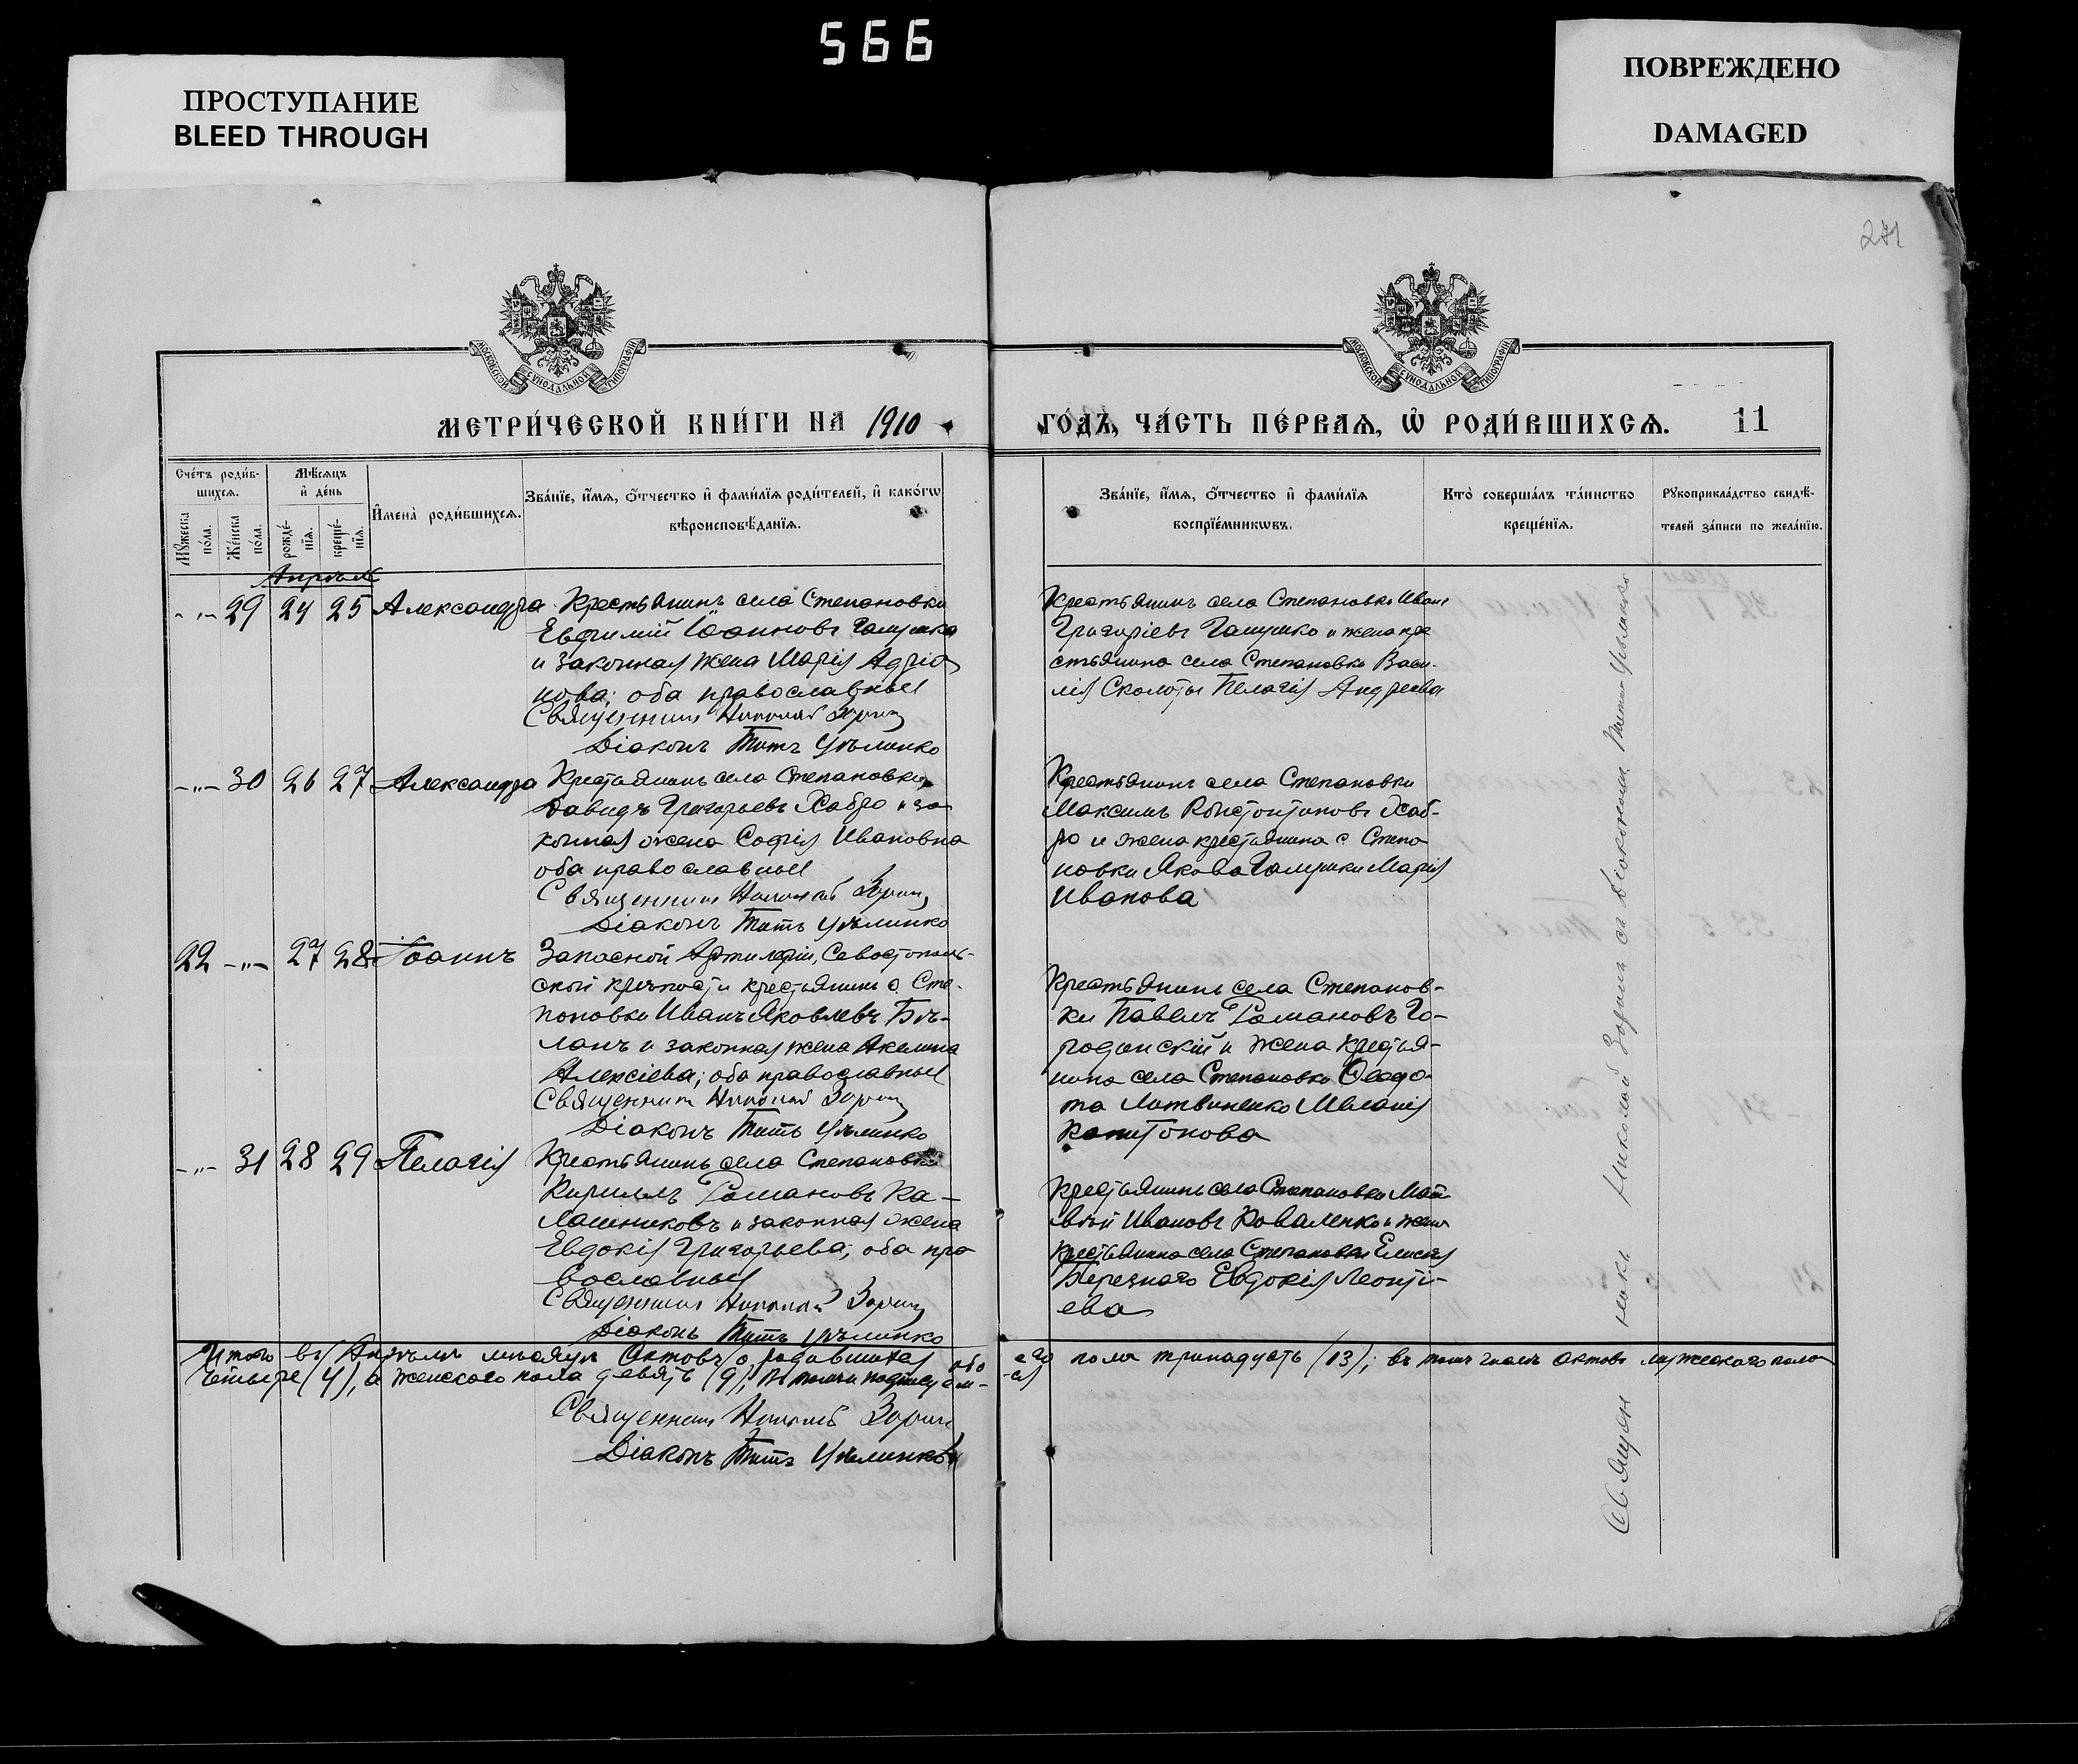 566
ПРОСТУПАНИЕ
BLEED THROUGH
ПОВРЕЖДЕНО
DAMAGED
МОСКОВСКОЙ СѴНОДАЛЬНОЙ ТИПОГРАФІИ
МОСКОВСКОЙ СѴНОДАЛЬНОЙ ТИПОГРАФІИ
МЕТРИ́ЧЕСКОЙ КНИ́ГИ НА 1910
ГО́ДЪ, ЧА́СТЬ ПЕ́РВАѦ, Ѡ҆ РОДИ́ВШИХСѦ. 11
Сче́тъ роди́в-
шихсѧ.
Мѣ́сѧцъ
и҆ де́нь
Мꙋ́жеска по́ла.
Же́нска по́ла.
рожде́-нїѧ.
креще́-нїѧ.
И҆мена̀ роди́вшихсѧ.
Зва́нїе, и҆́мѧ, ѻ҆́тчество и҆ фами́лїѧ роди́телей, и҆ како́гѡ
вѣроисповѣ́данїѧ.
Зва́нїе, и҆́мѧ, ѻ҆́тчество и҆ фами́лїѧ
воспрїе́мникѡвъ.
Кто̀ соверша́лъ та́инство
креще́нїѧ.
Рꙋкоприкла́дство свидѣ́-
телей за́писи по жела́нїю.
Апрѣль
-„- 29 24 25 Александра Крестьянинъ села Степановки
Евфимій Іоанновъ Галушка
и законная жена Марія Адріа
нова; оба православные
Священникъ Николай Зоринъ
Діаконъ Титъ
Крестьянинъ села Степановки Иванъ
Григоріевъ Галушко и жена кре
стьянина села Степановки Васи-
лія Сколоты Пелагія Андреева
-„- 30 26 27 Александра Крестьянинъ села Степановки
Давидъ Григорьевъ Хабро и за
конная жена Софія Ивановна
оба православные
Священникъ Николай Зоринъ
Діаконъ Титъ
Крестьянинъ села Степановки
Максимъ Констонтиновъ Хаб-
ро и жена крестьянина с Степа
новки Якова Галушки Марія
Иванова
22 -„- 27 28 Іоаннъ Запасной Артилеріи, Севастополь-
ской крѣпости крестьянинъ с. Сте-
пановки Иванъ Яковлевъ Бѣ-
ланъ и законная жена Акелина
Алексіева; оба православные
Священникъ Николай Зоринъ
Діаконъ Титъ
Крестьянинъ села Степанов-
ки Павелъ Романовъ Го-
родинскій и жена крестья-
нина села Степановки Ѳеодо-
та Литвиненко Меланія
Капитонова
-„- 31 28 29 Пелагія Крестьянинъ села Степановки
Кириллъ Романовъ Ка-
лашниковъ и законная жена
Евдокія Григорьева; оба пра
вославные
Священникъ Николай Зоринъ
Діаконъ Титъ
Крестьянинъ села Степановки Мат
вѣй Ивановъ Коваленко и жена
крестьянина села Степановки Елисея
Березнаго Евдокія Леонті-
ева
Священникъ Николай Зоринъ съ діакономъ Титомъ
Итого въ Апрѣлѣ мѣсяцѣ Актовъ о родившихся обо
его пола тринадцать (13); въ томъ числѣ актовъ мужескаго пола
четыре (4), а женскаго пола девять (9); въ томъ и подписуем-
ся
Священникъ Николай Зоринъ
Діаконъ Титъ